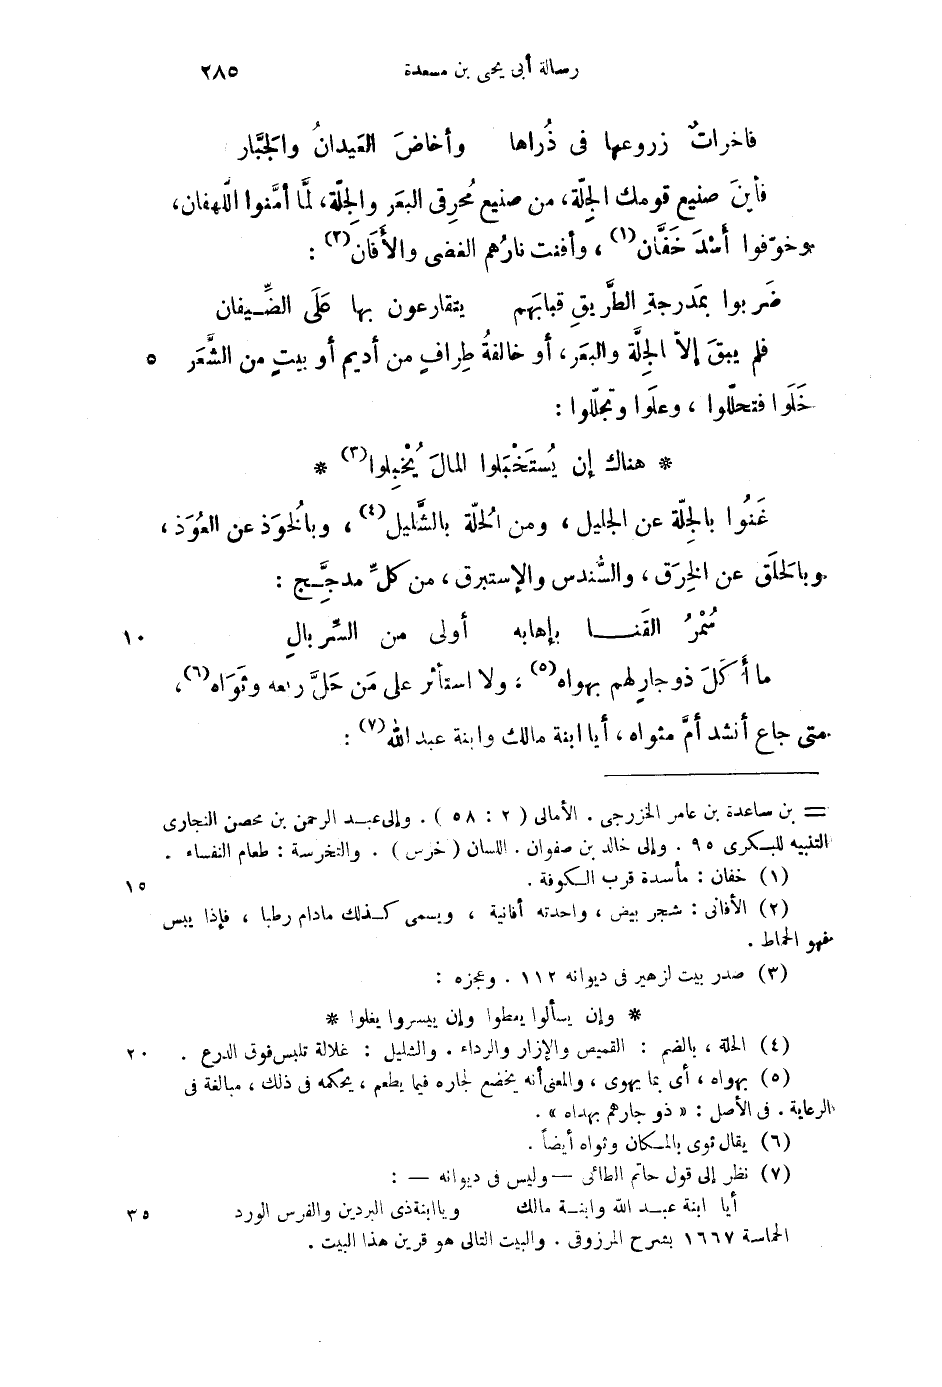 رسالة أبى يحيى بن مسعدة ٢٨٥
فاخراتٌ زروعها فى ذُراها وأخاضَ العَيدانُ والجبَّار
فأينَ صنيع قومك الجِلّة، من صنيع مُحرِقى البعَر والجِلّة، لمَّا أمَّنوا اللَّهفان،
وخوّفوا أُسْدَ خَفَّان(١)، وأفنت نارُهم الغضى والأَفَان(٢) :
ضَربوا بمَدرجةِ الطَّريقِ قبابَهم يتقارعون بها عَلَى الضِّيفان
فلم يبقَ إلاّ الجِلَّة والبعَر، أو خالفةُ طِرافٍ من أديم أو بيتٍ من الشَّعَر ٥
خَلَوا فتحلّلوا، وعلَوا وتجلّلوا :
* هناك إن يُستَخْبَلوا المالَ يُخْبِلوا(٣) *
غَنُوا بالجِلّة عن الجليل، ومن الحُلّة بالشَّليل(٤)، وبالخُوَذ عن العُوَذ،
وبالحَلَق عن الخِرَق، والسُّندس والإستبرق، من كلِّ مدجَّج :
سُمْرُ القَنــا بإهابه أولى من السِّربالِ ١٠
ما أَكَلَ ذو جارٍ لهم بهواه(٥)، ولا استأثر على مَن حَلَّ ربعه وثَوَاه(٦)،
متى جاع أنشد أمَّ مثواه، أيا ابنة مالك وابنة عبد الله(٧) :
= بن ساعدة بن عامر الخزرجى . الأمالى ( ٢ : ٥٨ ) . وإلى عبد الرحمن بن محصن النجارى
التنبيه للبكرى ٩٥ . وإلى خالد بن صفوان . اللسان ( خرس ) . والتخرسة : طعام النفساء .
(١) خفان : مأسدة قرب الكوفة . ١٥
(٢) الأفانى : شجر بيض ، واحدته أفانية ، ويسمى كذلك مادام رطبا ، فإذا يبس
فهو الحماط .
(٣) صدر بيت لزهير فى ديوانه ١١٢ . وعجزه :
* وإن يسألوا يعطوا وإن ييسروا يغلوا *
(٤) الحلة ، بالضم : القميص والإزار والرداء . والشليل : غلالة تلبس فوق الدرع . ٢٠
(٥) بهواه ، أى بما يهوى ، والمعنى أنه يخضع لجاره فيما يطعم ، يحكمه فى ذلك ، مبالغة فى
الرعاية . فى الأصل : « ذو جارهم بهداه » .
(٦) يقال ثوى بالمكان وثواه أيضاً .
(٧) نظر إلى قول حاتم الطائى — وليس فى ديوانه — :
أيا ابنة عبد الله وابنة مالك ويا ابنة ذى البردين والفرس الورد ٣٥
الحماسة ١٦٦٧ بشرح المرزوقى . والبيت التالى هو قرين هذا البيت .